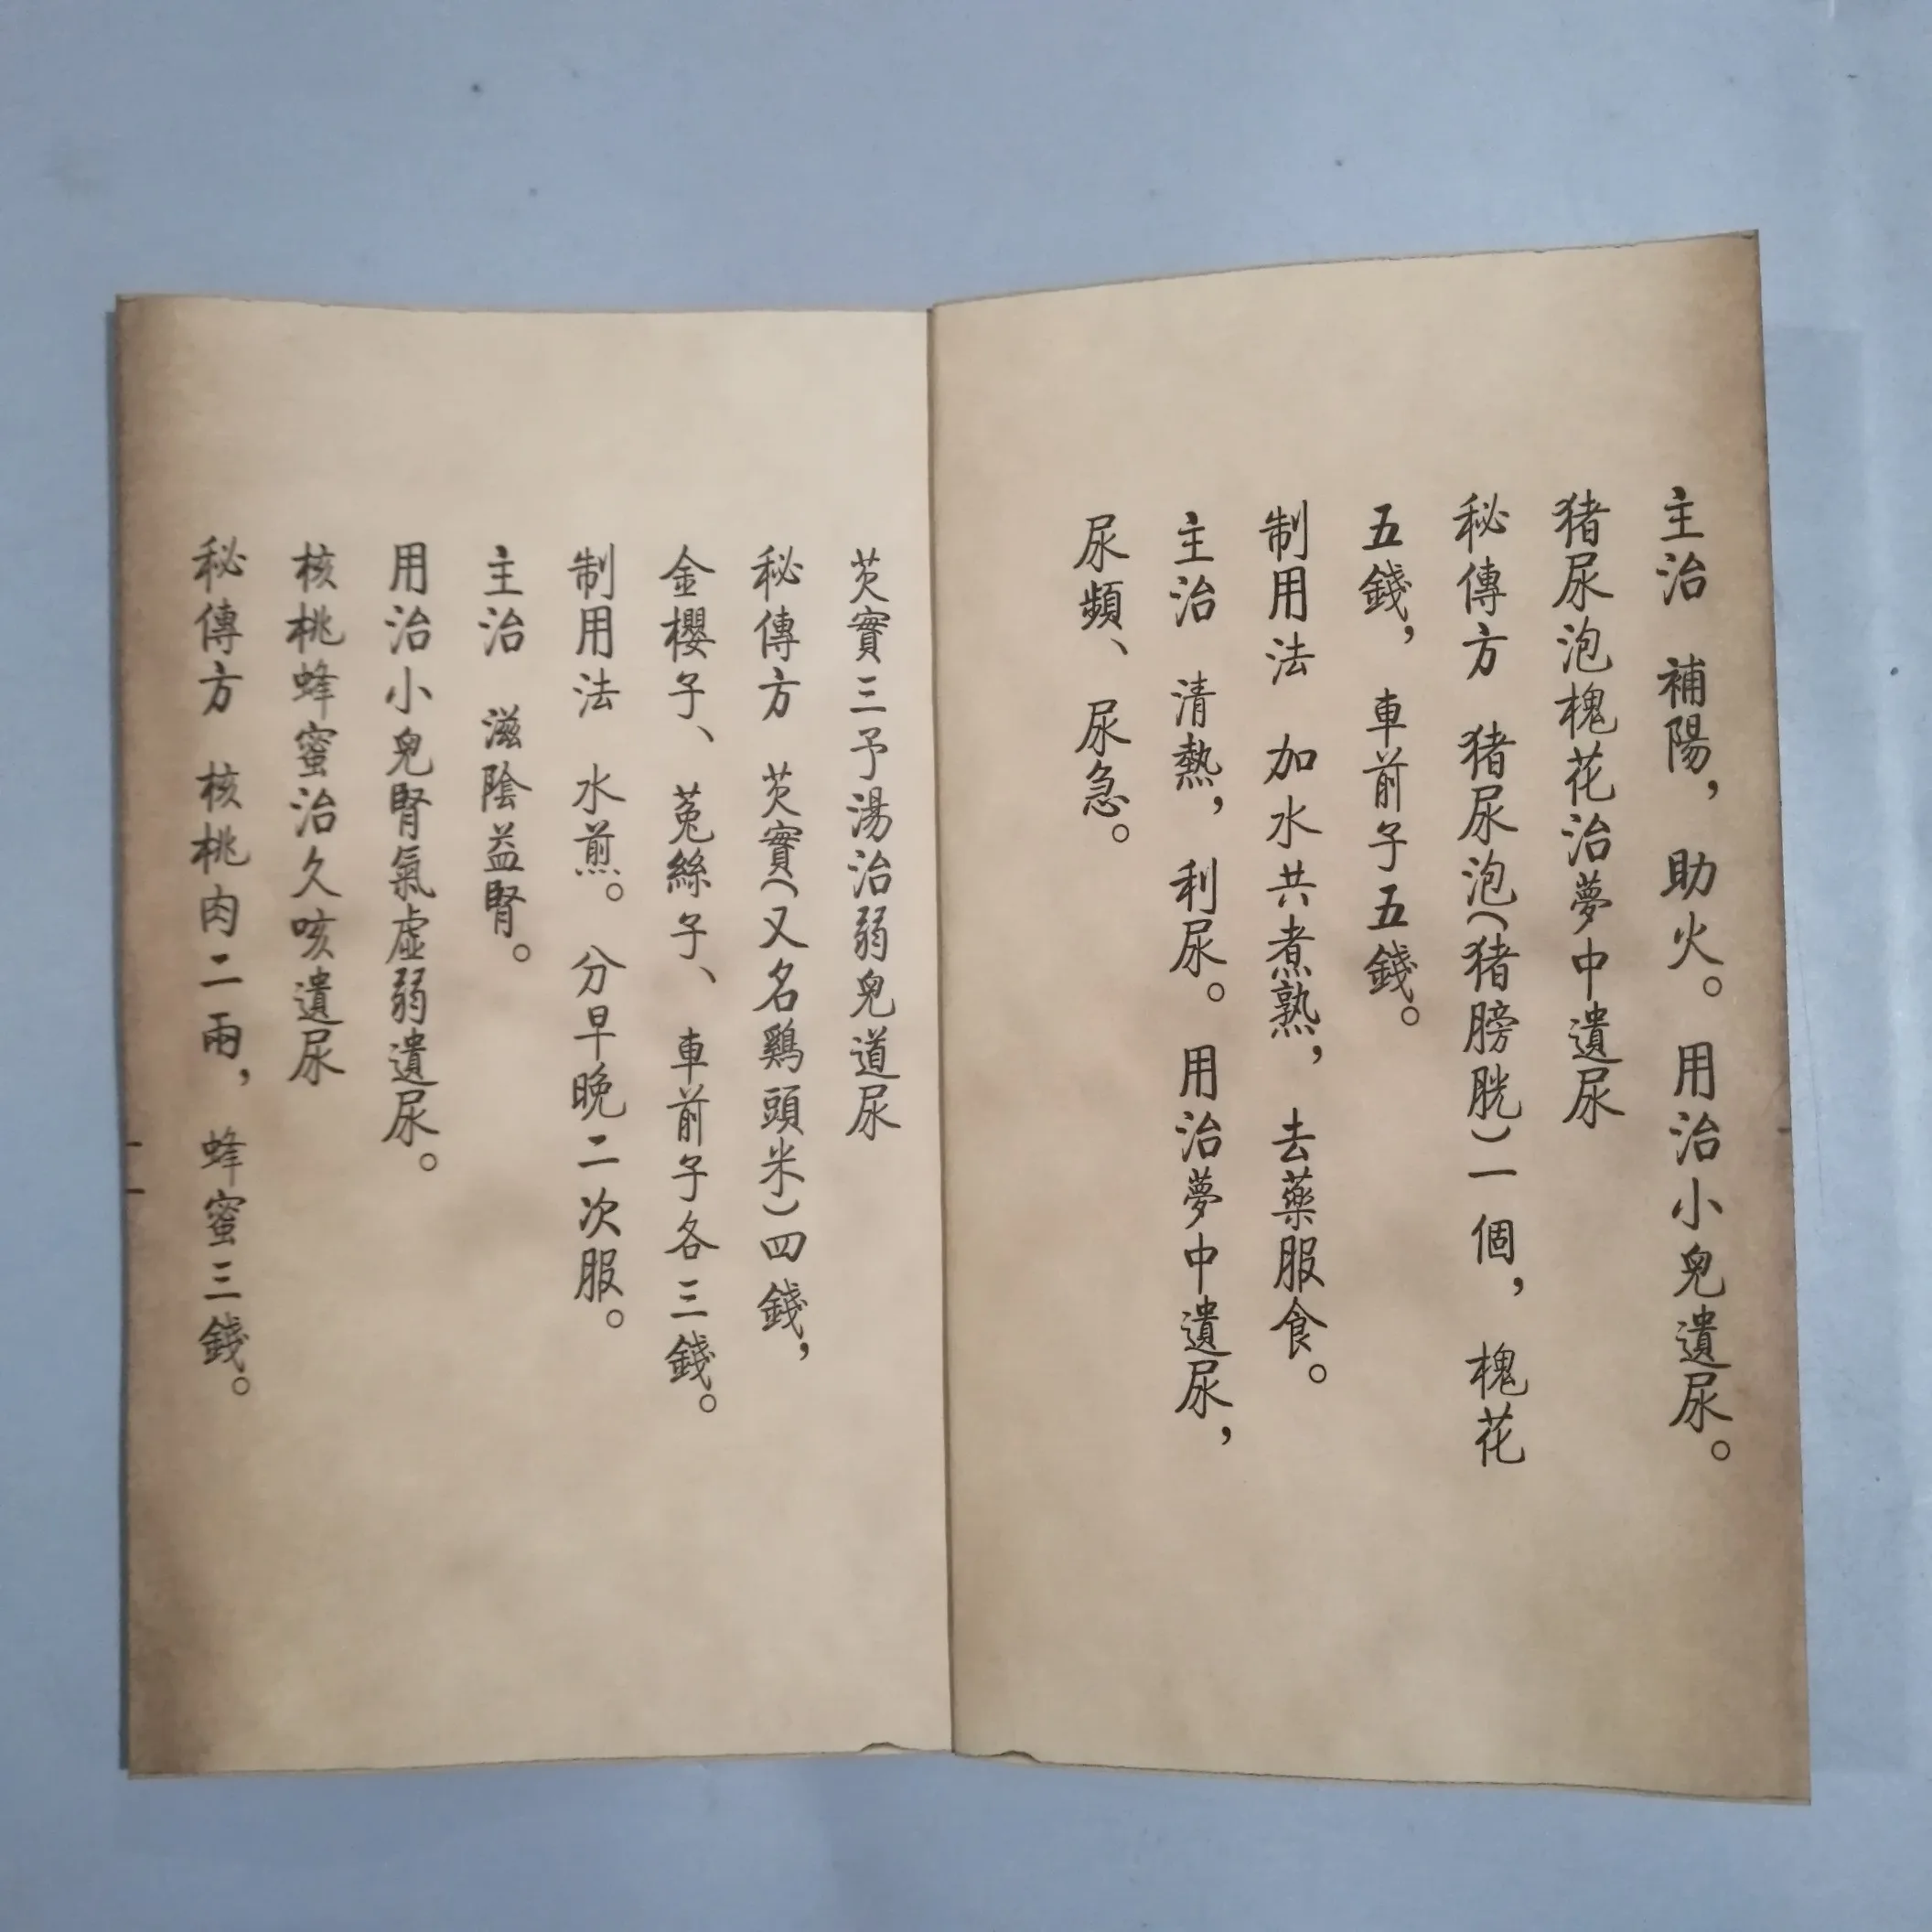 主治　補陽，助火。用治小兒遺尿。
猪尿泡槐花治夢中遺尿
秘傳方　猪尿泡(猪膀胱)一個，槐花
五錢，車前子五錢。
制用法　加水共煮熟，去藥服食。
主治　清熱，利尿。用治夢中遺尿，
尿頻、尿急。
芡實三予湯治弱兒道尿
秘傳方　芡實(又名鷄頭米)四錢，
金櫻子、菟絲子、車前子各三錢。
制用法　水煎。分早晚二次服。
主治　滋陰益腎。
用治小兒腎氣虛弱遺尿。
核桃蜂蜜治久咳遺尿
秘傳方　核桃肉二兩，蜂蜜三錢。